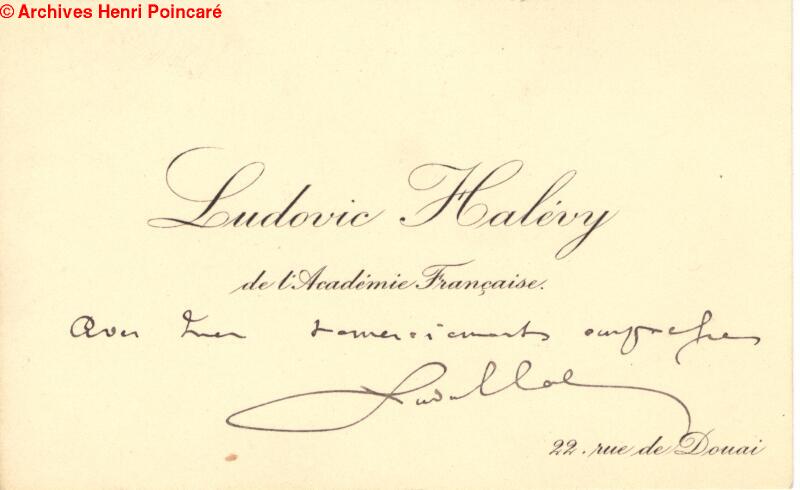 © Archives Henri Poincaré
Ludovic Halévy
de l'Académie Française.
Avec mes remerciements empressés
22. rue de Douai